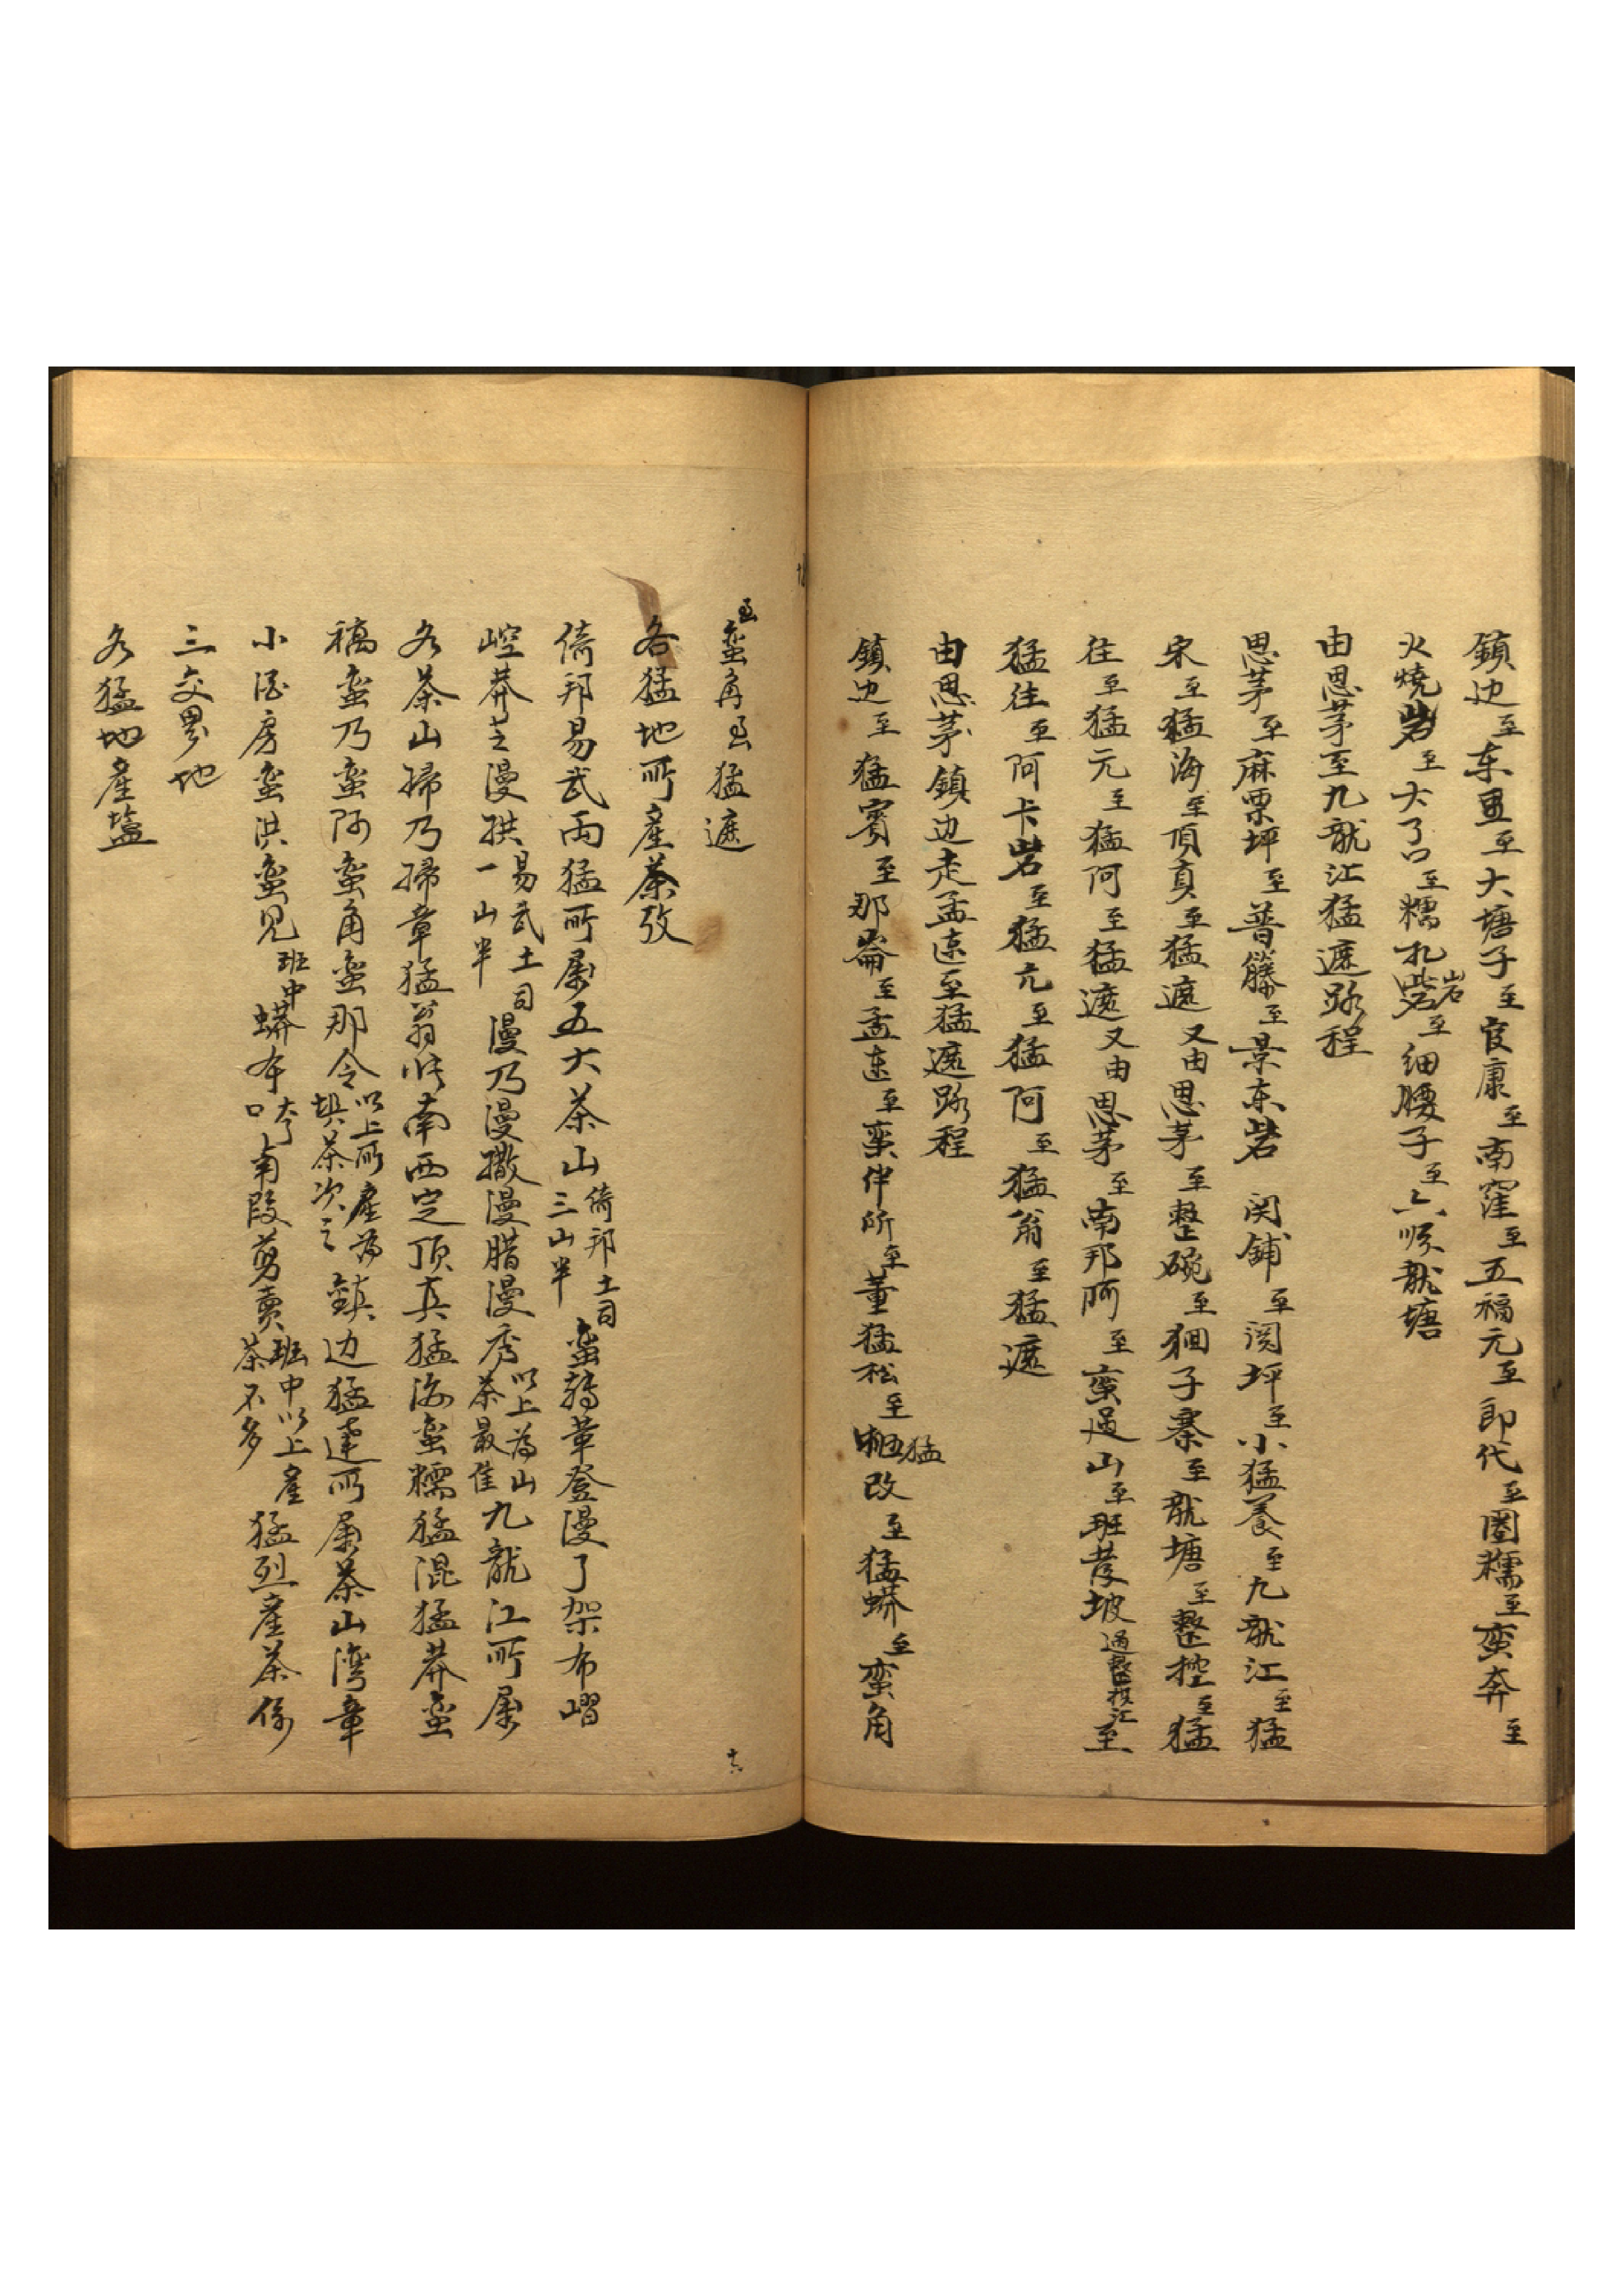 鎮边至东里至大塘子至官康至南窪至五福元至郎代至圈糯至蛮奔至
火燒岩至大了口至糯扎岩至细腰子至六顺龍塘
由思茅至九龍江猛遮路程
思茅至麻栗坪至普籐至景东岩 関鋪至関坪至小猛養至九龍江至猛
宋至猛海至頂真至猛遮又由思茅至整碗至狪子寨至龍塘至整控至猛
往至猛元至猛阿至猛遮又由思茅至南邦阿至蛮過山至班坡過整控江至
猛往至阿卡岩至猛亢至猛阿至猛翁至猛遮
由思茅鎮边走孟连至猛遮路程
鎮边至猛賓至那崙至孟连至蛮伴所至董猛松至猛改至猛蟒至蛮角
至蛮角至猛遮
各猛地所產茶攷
倚邦易武兩猛所属五大茶山倚邦土司三山半蛮磚章登漫了架布嶍
崆莽芝漫拱易武土司一山半漫乃漫撒漫腊漫秀以上為山茶最佳九龍江所属
各茶山掃乃掃章猛翁南西定頂真猛海蛮糯猛混猛莽蛮
蛮乃蛮阿蛮角蛮那令以上所產為垻茶次之鎮边猛達所属茶山湾章
小酒房蛮洪蛮见班中蟒本大口南段剪賣班中以上產茶不多猛烈產茶係
三交界地
各猛地產塩
十六